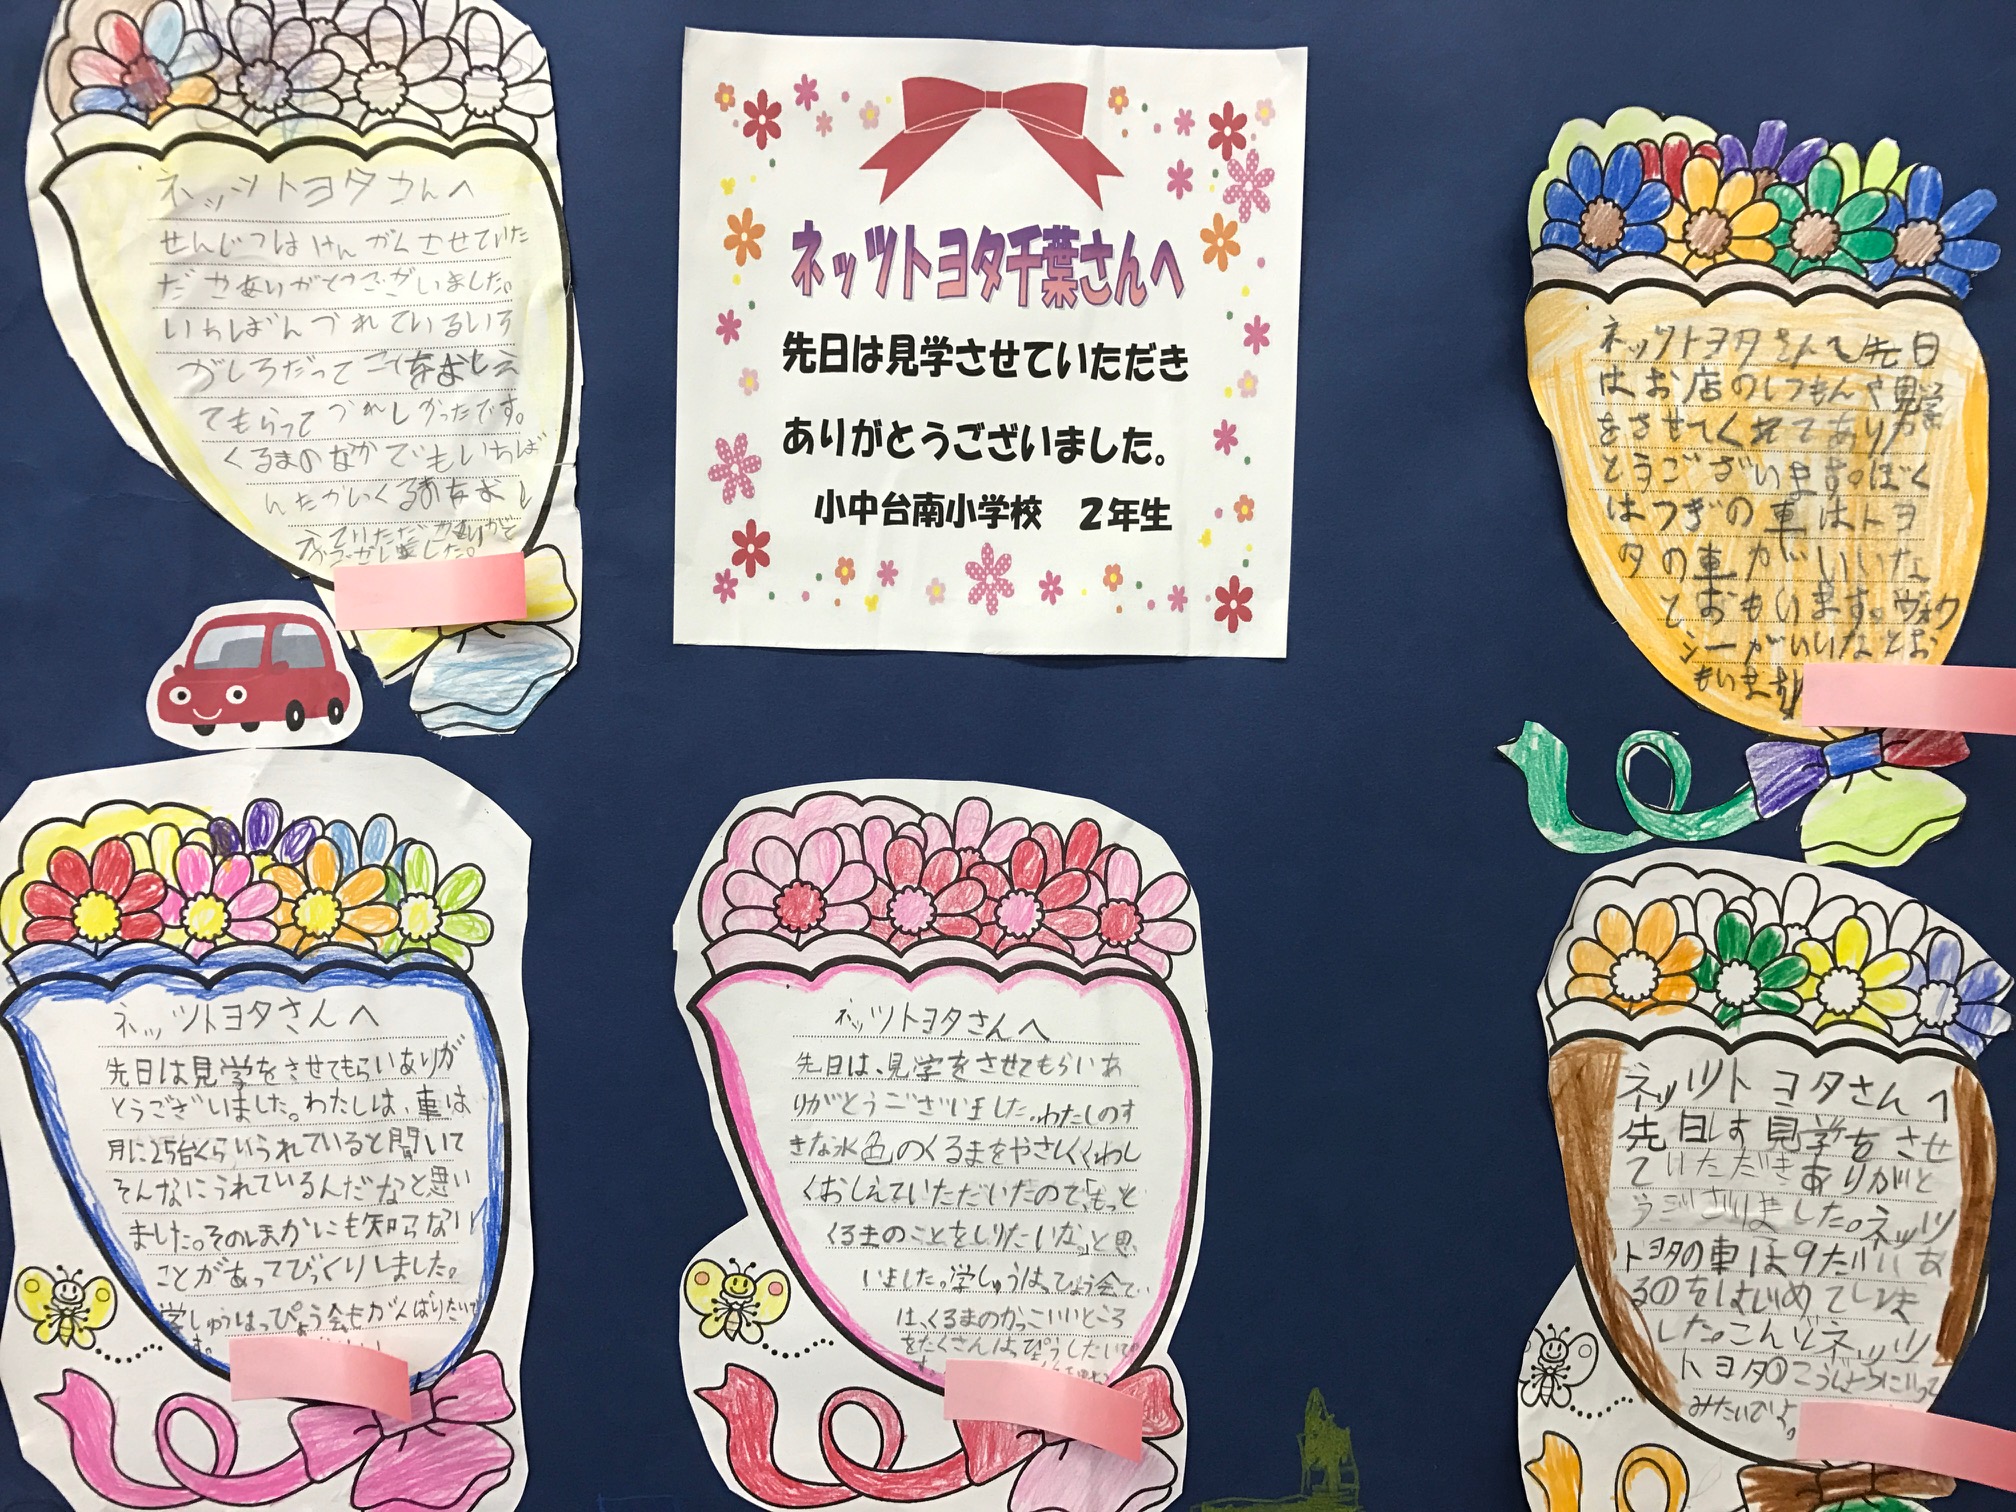 ネッツトヨタ千葉さんへ
先日は見学させていただき
ありがとうございました。
小中台南小学校 2年生
ネッツトヨタさんへ
せんじつはけんがくさせていた
だきありがとうございました。
いちばんうれているいろ
がしろだってことをおしえ
てもらってうれしかったです。
くるまのなかでもいちば
んたかいくるまをおし
えていただきありがと
うございました。
ネッツトヨタさんへ先日
はお店のしつもんや見学
をさせてくれてありが
とうございます。ぼく
はつぎの車はトヨ
タの車がいいな
ておもいます。ヴォク
シーがいいなとお
もいます
ネッツトヨタさんへ
先日は見学をさせてもらいありが
とうございました。わたしは、車は
月に25台くらいうれていると聞いて
そんなにうれているんだなと思い
ました。そのほかにも知らない
ことがあってびっくりしました。
学しゅうはっぴょう会もがんばりたいで
す。
ネッツトヨタさんへ
先日は、見学をさせてもらいあ
りがとうございました。わたしのす
きな水色のくるまをやさしくくわし
くおしえていただいたので、「もっと
くるまのことをしりたいな。」と思
いました。学しゅうはっぴょう会で
は、くるまのかっこいいところ
をたくさんはっぴょうしたいで
す。
ネッツトヨタさんへ
先日は見学をさせ
ていただきありがと
うございました。ネッツ
トヨタの車は9だいあ
るのをはじめてしりま
した。こんどネッツ
トヨタのこうじょうにいって
みたいです。